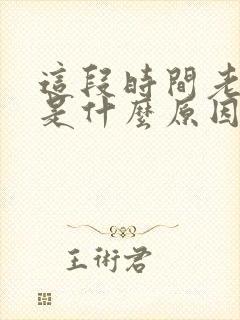 這段時間老
是什麼原因
王術君